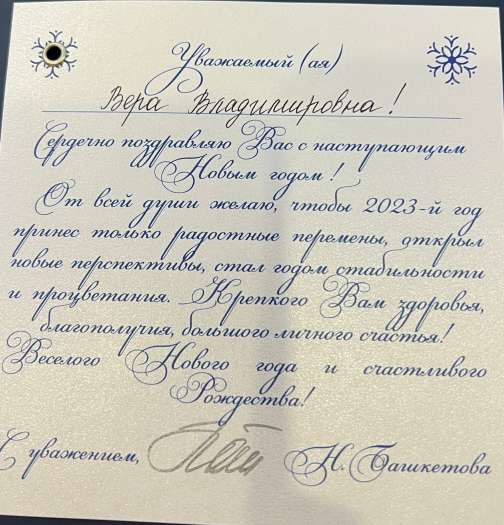 Уважаемый (ая)
Вера Владимировна!
Сердечно поздравляю Вас с наступающим
Новым годом!
От всей души желаю, чтобы 2023-й год
принес только радостные перемены, открыл
новые перспективы, стал годом стабильности
и процветания. Крепкого Вам здоровья,
благополучия, большого личного счастья!
Веселого Нового года и счастливого
Рождества!
С уважением, Н. Башкетова